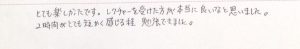 とても楽しかったです。レクチャーを受けた方が本当に良いなと思いました。
2時間がとても短めく感じる程、勉強できました。